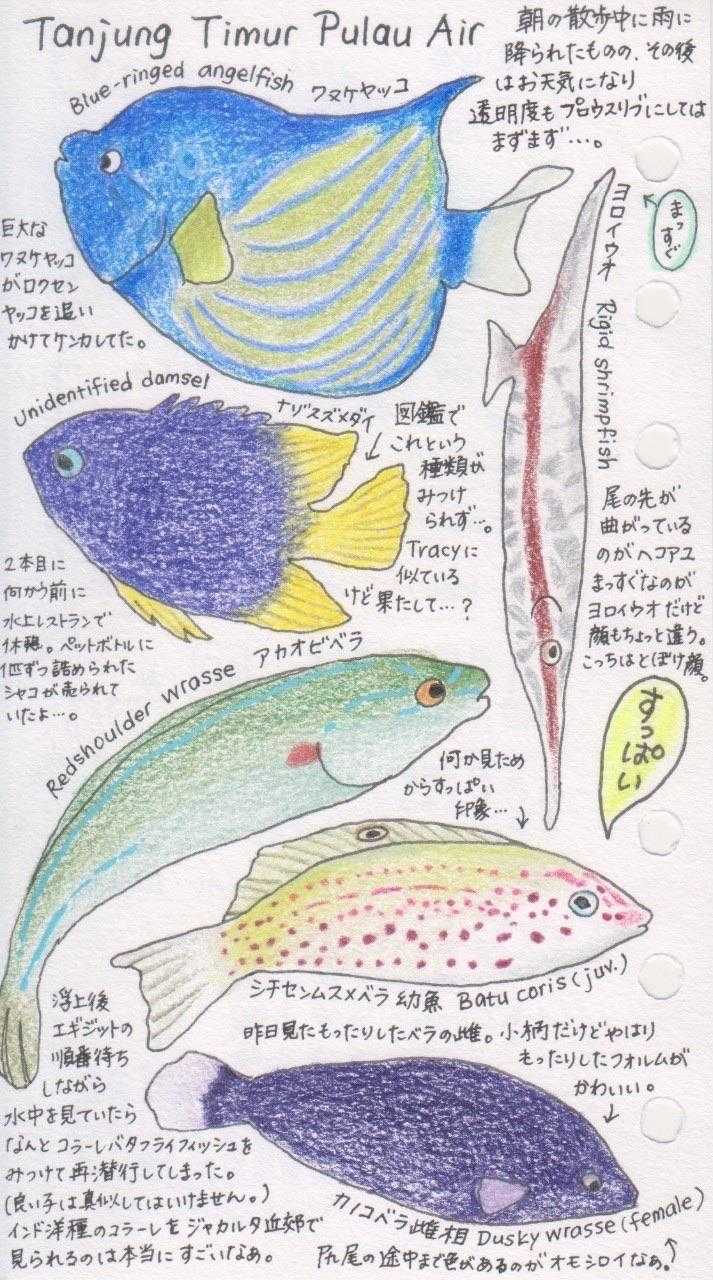 Tanjung Timur Pulau Air
朝の散歩中に雨に
降られたものの、その後
はお天気になり
透明度も プロウスリブにしては
まずまず…。
Blue-ringed angelfish ワヌケヤッコ
巨大な
ワヌケヤッコ
がロクセン
ヤッコを追い
かけてケンカしてた。
まっすぐ
ヨロイウオ Rigid shrimpfish
Unidentified damsel
ナゾスズメダイ
図鑑で
これという
種類が
みつけ
られず…。
Tracyに
似ている
けど 果たして…?
尾の先が
曲がっている
のがヘコアユ
まっすぐなのが
ヨロイウオだけど
顔もちょっと違う。
こっちはとぼけ顔。
2本目に
向かう前に
水上レストランで
休憩。ペットボトルに
1匹ずつ詰められた
シャコが売られて
いたよ…。
Redshoulder wrasse アカオビベラ
すっぱい
何か見ため
からすっぱい
印象…
シチセンムスメベラ 幼魚 Batu coris (juv.)
昨日見たもったりしたベラの雌。小柄だけどやはり
もったりしたフォルムが
かわいい。
浮上後
エギジットの
順番待ち
しながら
水中を見ていたら
なんと コラーレバタフライフィッシュを
みつけて再潜行してしまった。
(良い子は真似してはいけません。)
インド洋種のコラーレをジャカルタ近郊で
見られるのは本当に すごいなあ。
カノコベラ雌相 Dusky wrasse (female)
尻尾の途中まで色があるのがオモシロイなぁ。